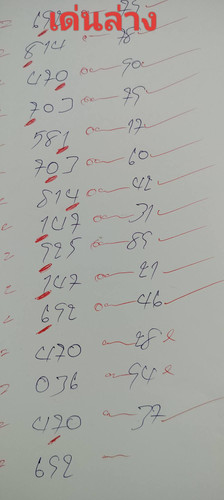 เด่นล่าง
692 79
814 78
470 90
703 75
581 17
703 60
814 42
147 31
925 89
147 21
692 46
470 28
036 94
470 37
692